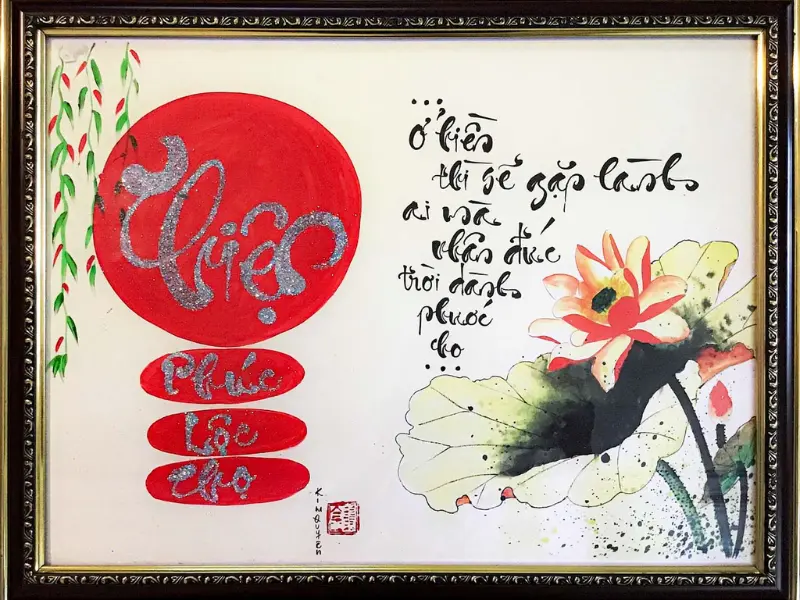 Thiện
Phúc
Lộc
Thọ
KIM QUYÊN
...
Ở hiền
thì sẽ gặp lành
ai mà
nhân đức
trời dành
phước
cho
...